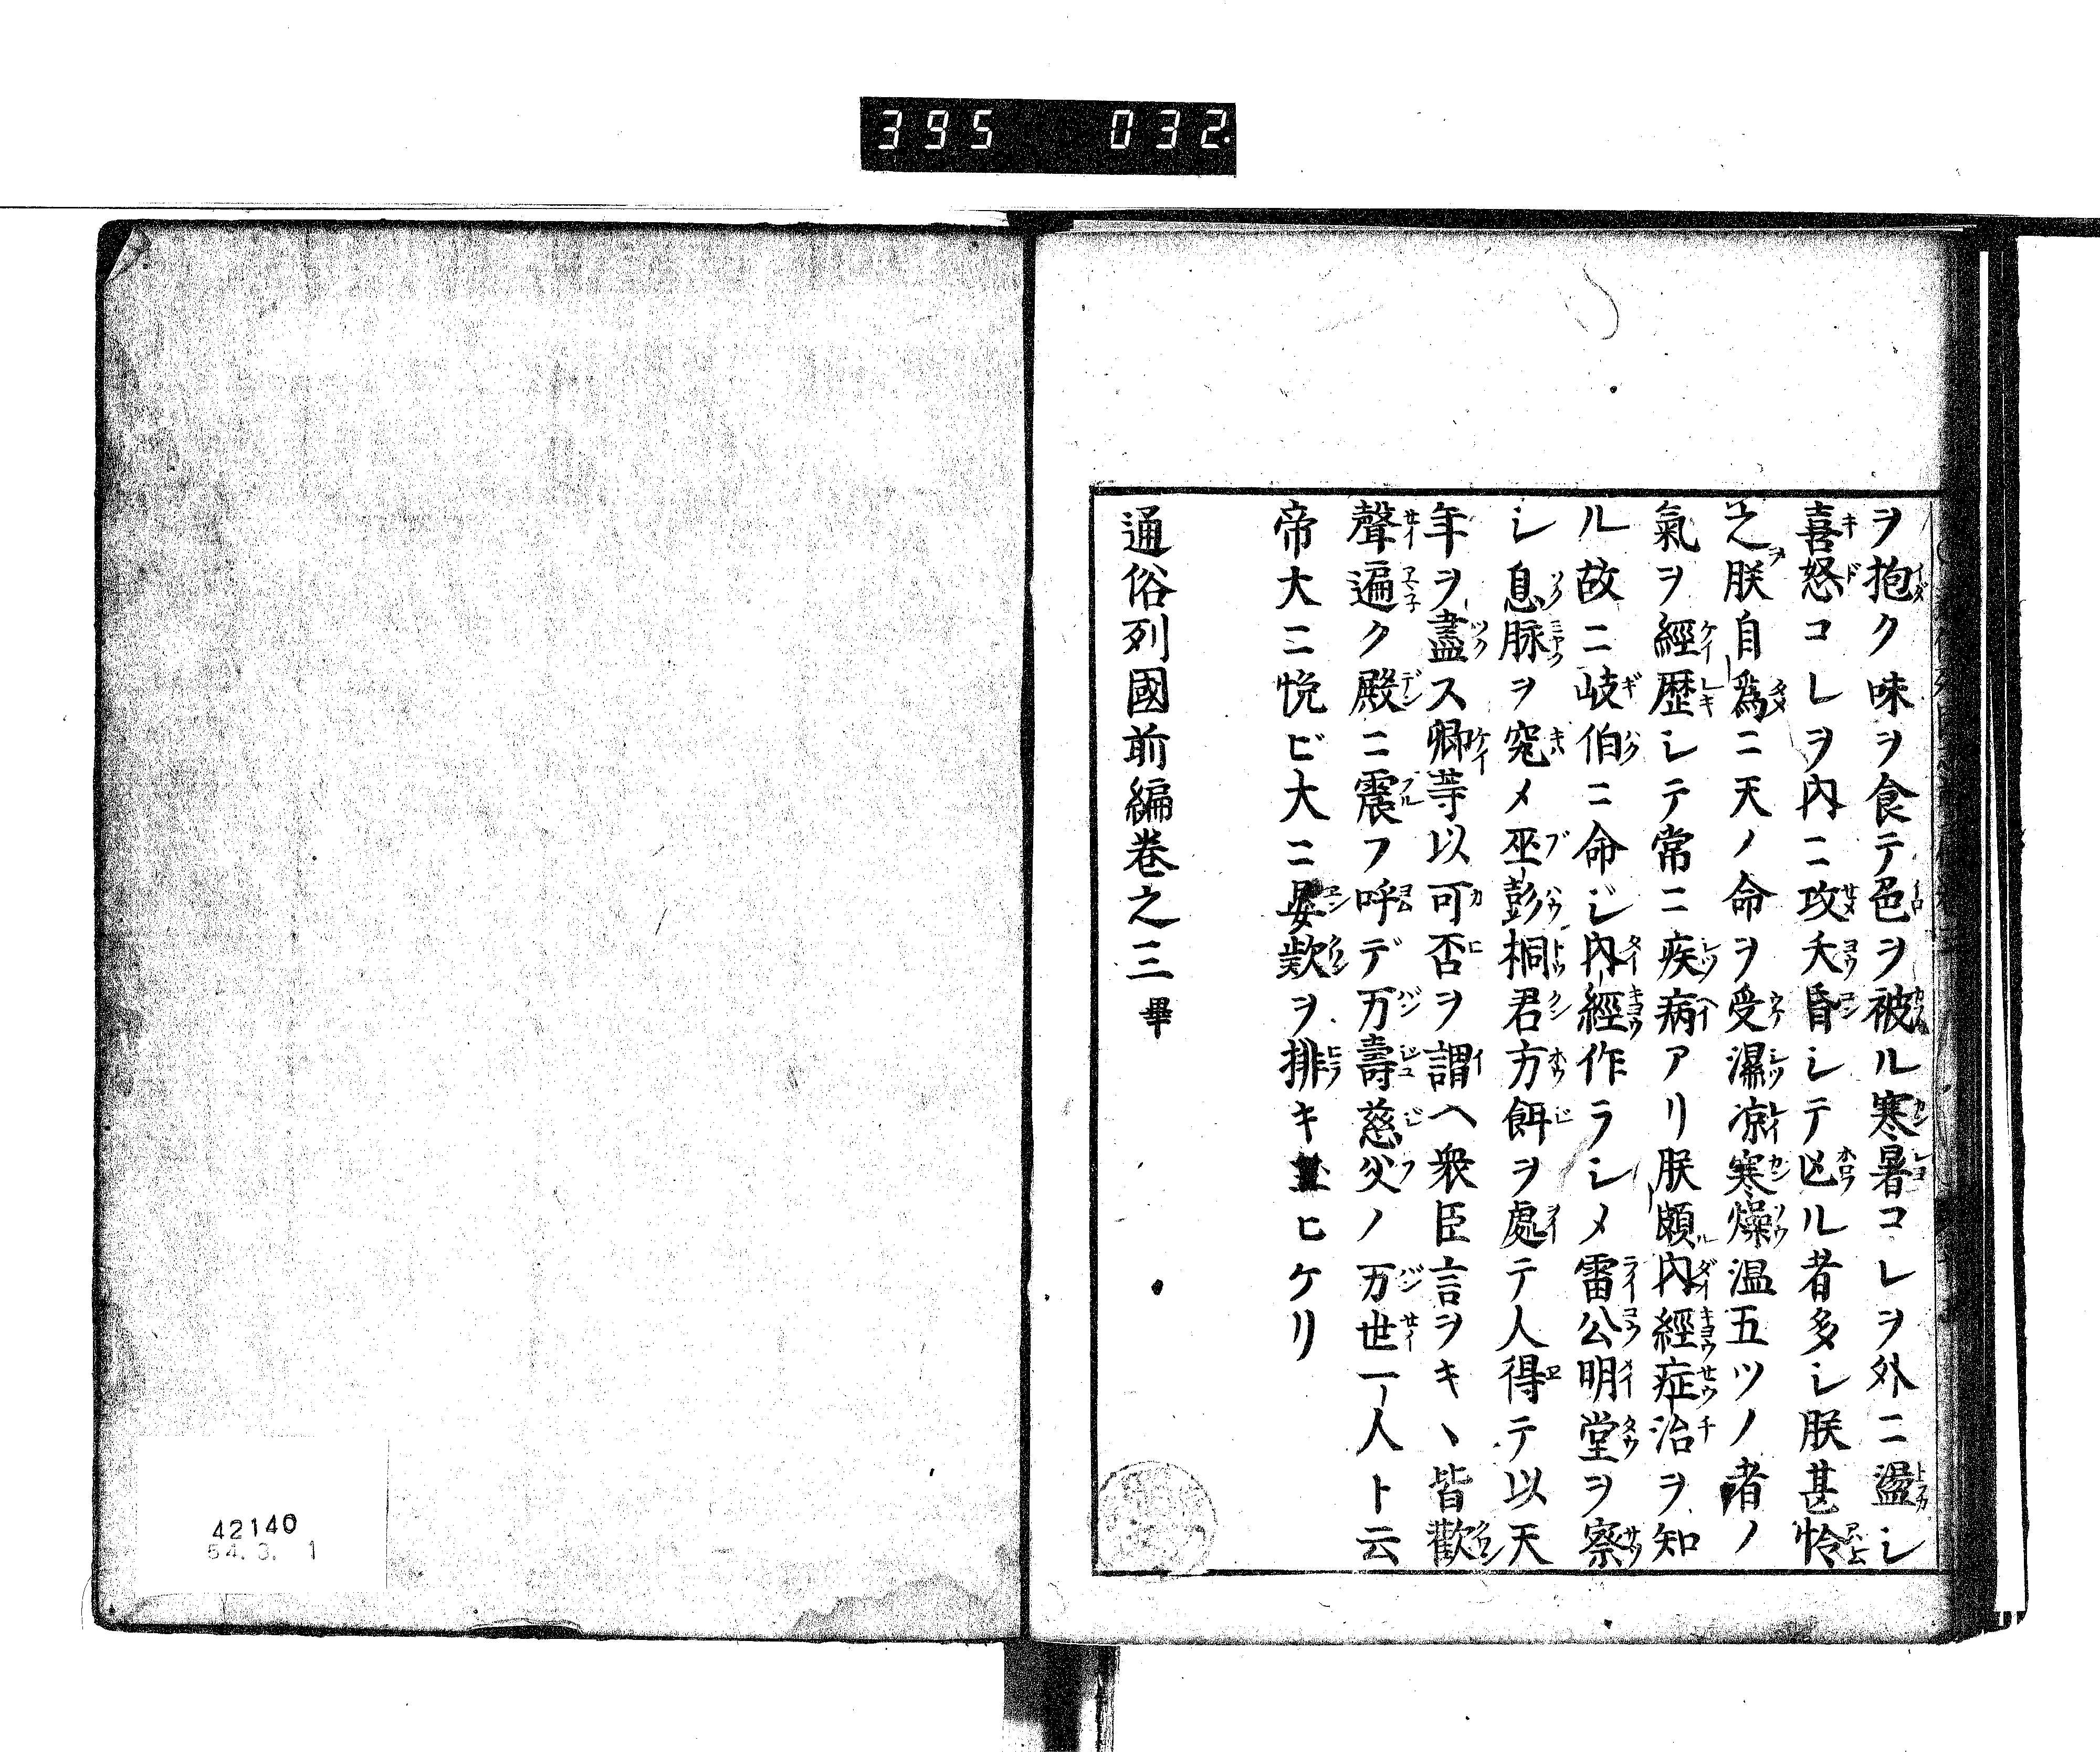 395 032
ヲ抱ク味ヲ食テ色ヲ被ル寒暑コレヲ外ニ盪シ
喜怒コレヲ内ニ攻夭昏シテ凶ル者多シ朕甚怜
之朕自爲ニ天ノ命ヲ受濕凉寒燥温五ツノ者ノ
氣ヲ經歴シテ常ニ疾病アリ朕頗内經症治ヲ知
ル故ニ岐伯ニ命ジ内經作ラシメ雷公明堂ヲ察
シ息脉ヲ究メ巫彭桐君方餌ヲ處テ人得テ以天
年ヲ盡ス卿等以可否ヲ謂ヘ衆臣言ヲキヽ皆歡
聲遍ク殿ニ震フ呼デ万壽慈父ノ万世一人ト云
帝大ニ悦ビ大ニ宴歎ヲ排キヒケリ
通俗列國前編巻之三畢
42140
54.3. 1